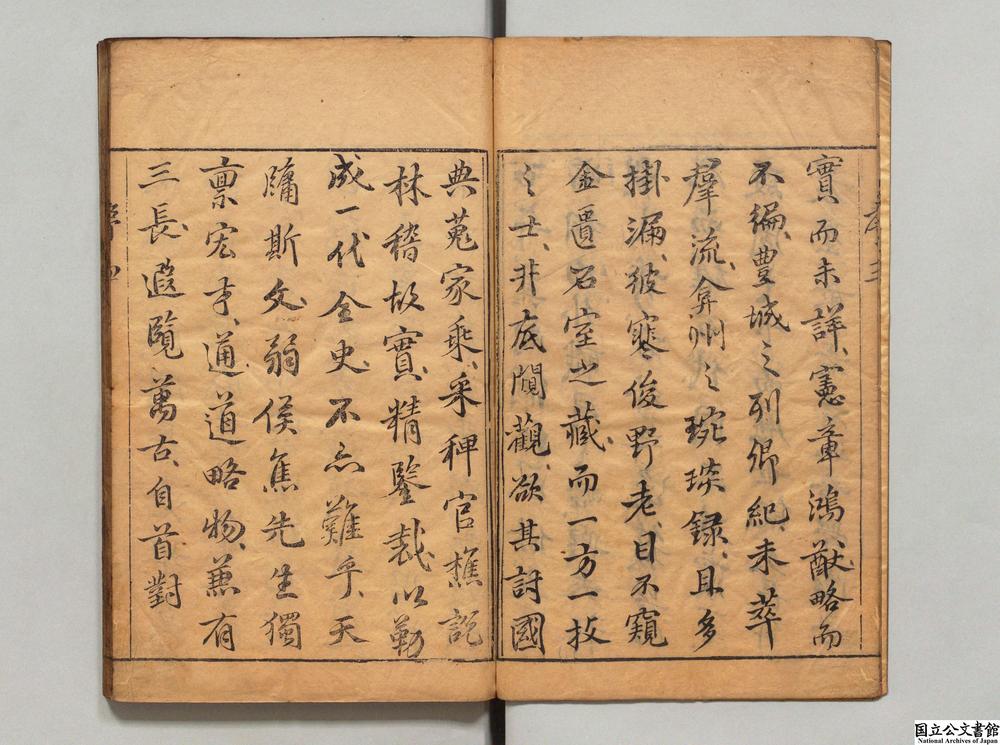 實而未詳、憲章鴻猷略而
不徧、豐城之列卿紀、未萃
羣流、弇州之琬琰録、且多
掛漏、彼寒俊野老、目不窺
金匱石室之藏、而一方一技
之士、非底閒觀、欲其討國
典、蒐家乘、采稗官樵説
林、稽故實、精鑒裁、以勒
成一代全史、不亦難乎、天
牖斯文、弱侯焦先生獨
禀宏才、通道略物、兼有
三長、遐覽萬古、自首對
国立公文書館
National Archives of Japan